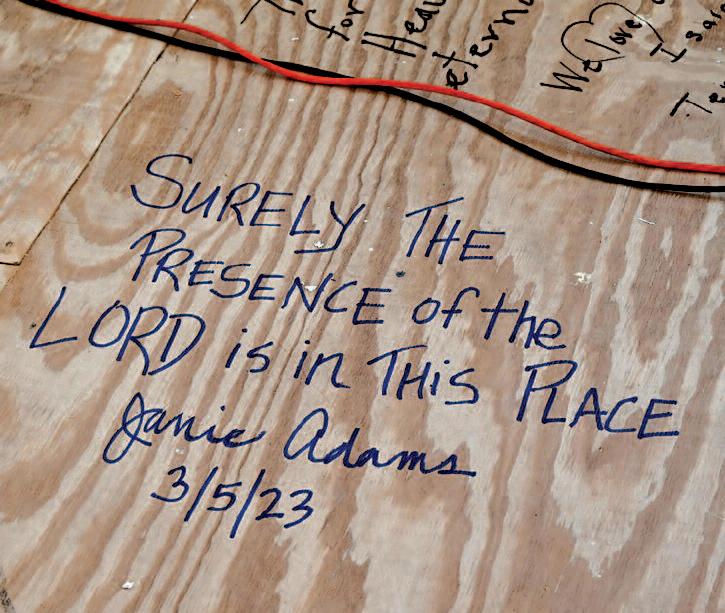 for
We love
SURELY THE
PRESENCE of the
LORD is in THiS PLACE
Janie Adams
3/5/23